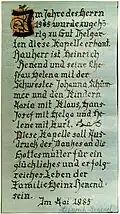 Im Jahre des Herrn
1985 wurde zugehö-
rig zu Gut Thelgar-
ten diese Kapelle erbaut
Bauherr ist Heinrich
Henend und seine Ehe-
frau Helena mit der
Schwester Johanna Schüm-
mer und den Kindern
Maria mit Klaus, Hans
Josef mit Helga und He-
lene mit Kurt.
Diese Kapelle soll Aus-
druck des Dankes an die
Gottesmutter für ein
glückliches und erfolg-
reiches Leben der
Familie Heinz Henend
sein.
Im Mai 1985